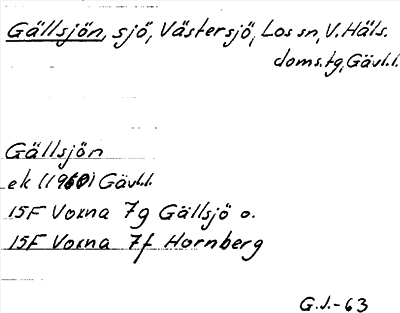 Gällsjön, sjö, Västersjö, Los sn, V. Häls.
doms.tg, Gävl.l.
Gällsjön
ek (1960) Gävl.l.
15F Voxna 7g Gällsjö o.
15F Voxna 7f Hornberg
G.J.-63